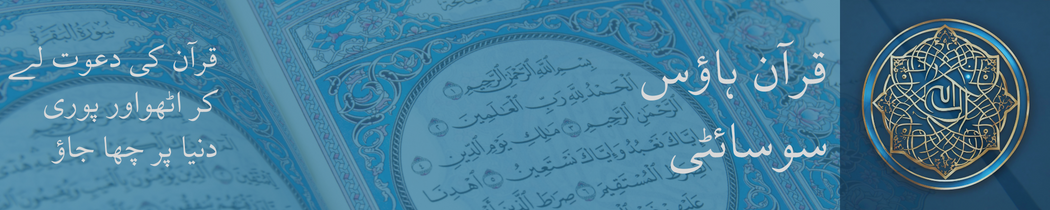 قرآن ہاؤس
سوسائٹی
قرآن کی دعوت لے
کر اٹھواور پوری
دنیا پر چھا جاؤ
سورة البقرة
بسم الله الرحمن الرحيم
الحمد لله رب العلمين
الرحمن الرحيم ملك يوم الدين
اياك نعبد واياك نستعين اهدنا
الصرط المستقيم صرط الذين